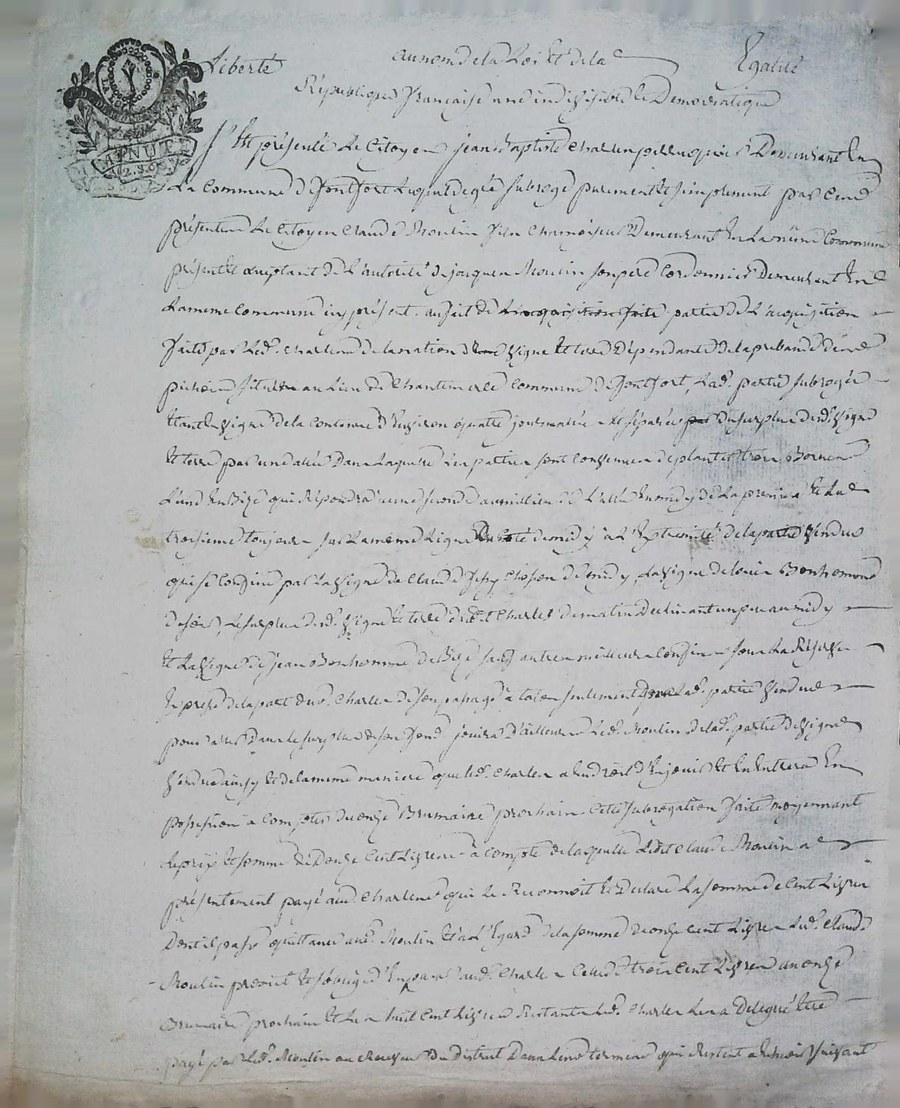 Liberté au nom de la Loi et de la Egalité
République française une indivisible et Democratique
S'est présenté Le Citoyen jean Baptiste Charles perruquier Demeurant En
La Commune de Montfort Lequel de gré subrogé purement et simplement par Ces
présentes Le Citoyen Claude Moulin fils Chamoiseur Demeurant En La même Commune
présent et acceptant de L'autorité de jacques Moulin son père Cordonnier Demeurant En
La meme Commune icy présent. au fait de partie de L'acquisition
faite par Led. Charles de la nation de vigne et terre Dépendante de la prebande de
située au Lieu de Chantemerle Commune de Montfort, Lad. partie subrogée
Etant En vigne de la Contenue d'Environ quatre journaliés et séparée du surplus desd. vigne
Et terre par une allée Dans Laquelle Les parties sont Convenues de planter trois Bornes
L'une En Bize qui Répondra a une seconde au millieu de L'allée En midy de La premiere et La
troisieme toujours sur La meme Ligne du Coté de midy a L'Extremité de la partie vendue
qui se Confine par La vigne de Claude de midy, La vigne de Louis Bonhomme
de soir, Le surplus desd. vigne et terre dud. Charles de matin Declinant un peu au midy
Et La vigne de jean Bonhomme de Bize sauf autres meilleurs Confins sous La Reserve
Expresse de la part dud. Charles de son passage a talon seulement Lad. partie vendue
pour aller Dans Le surplus de son fond jouira D'ailleurs Led. Moulin de lad. partie de vigne
vendue ainsy et de la meme maniere que Led. Charles a Eu droit d'En jouir Et En Entrera En
possession a Compter du onze Brumaire prochain. Cette subrogation faite moyennant
Le prix et somme de Douze Cent Livres a compte de laquelle Ledit Claude Moulin a
présentement payé aud. Charles qui Le Reconnoit Et Declare La somme de Cent Livres
Dont il passe quittance aud. Moulin et a L'Egard de la somme de onze cent Livres Led. Claude
Moulin promet Et s'oblige d'En payer aud. Charles trois Cent Livres au onze
Brumaire prochain Et Les huit Cent Livres Restantes Led. Charles Les a Delegué Etre
payé par Led. Moulin au Receveur Du District Dans Les termes qui Restent a Echoir suivant